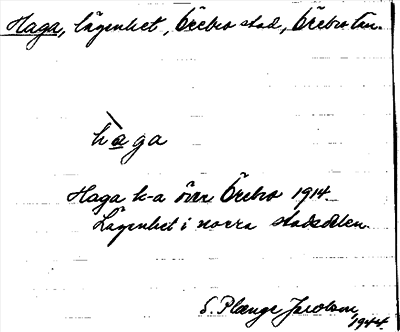 Haga, lägenhet, Örebro stad, Örebro län.
hàga
Haga k-a över Örebro 1914.
Lägenhet i norra stadsdelen.
S. Plænge Jacobson
1944.